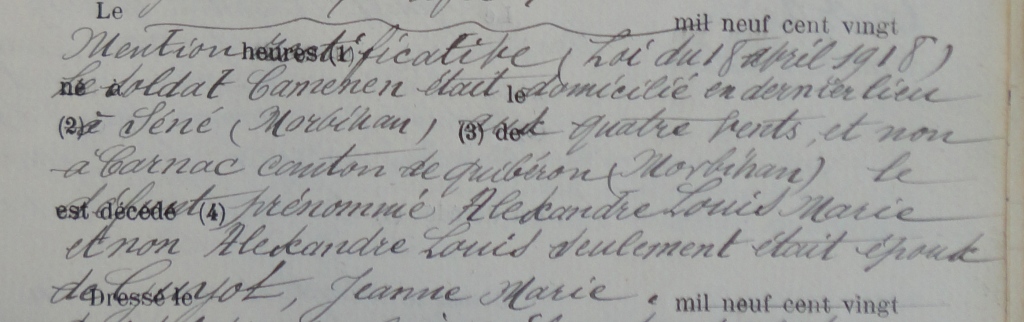 Le mil neuf cent vingt
Mention heures (1) rectificative (Loi du 18 avril 1918)
né à Le soldat Camenen était le domicilié en dernier lieu
(2) à Séné (Morbihan) (3) de aux quatre vents, et non
à Carnac canton de quibéron (Morbihan) le
est décédé (4) défunt prénommé Alexandre Louis Marie
et non Alexandre Louis seulement était époux
Dressé le de Guyot, Jeanne Marie. mil neuf cent vingt